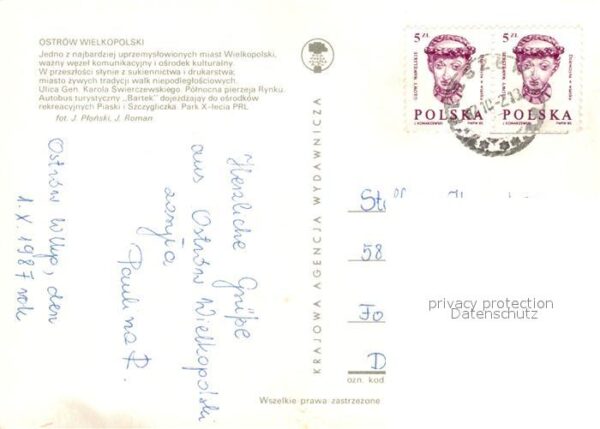 OSTRÓW WIELKOPOLSKI
Jedno z najbardziej uprzemysłowionych miast Wielkopolski,
ważny węzeł komunikacyjny i ośrodek kulturalny.
W przeszłości słynie z sukiennictwa i drukarstwa;
miasto żywych tradycji walk niepodległościowych.
Ulica Gen. Karola Świerczewskiego. Północna pierzeja Rynku.
Autobus turystyczny „Bartek" dojeżdżający do ośrodków
rekreacyjnych Piaski i Szczygliczka. Park X-lecia PRL
fot. J. Płoński, J. Roman
Herzliche Grüße
aus Ostrów Wielkopolski
Paulina R.
Ostrów Wlkp, den
1. X. 1987 rok
KRAJOWA AGENCJA WYDAWNICZA
5 ZŁ
POLSKA
5 ZŁ
POLSKA
58
Fo
D
ozn. kod
privacy protection
Datenschutz
Wszelkie prawa zastrzeżone